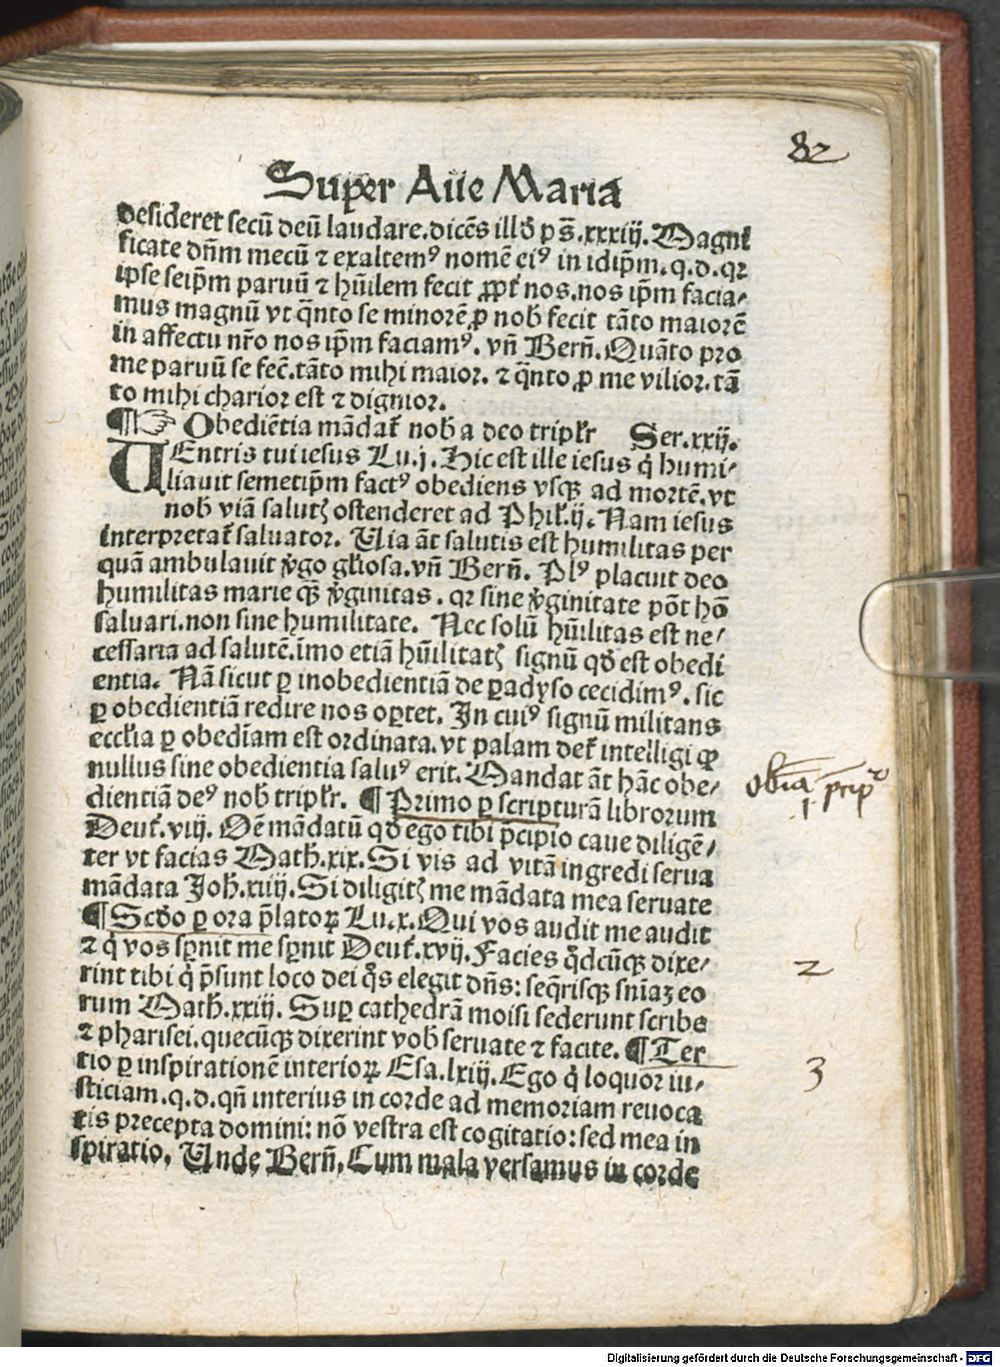 82
Super Aue Maria
desideret secū deū laudare.dicēs illđ p̄s̄.xxxiij. Magni
ficate dn̄m mecū ⁊ exaltemꝰ nomē eiꝰ in idip̄m.q.d.qꝛ
ipse seip̄m paruū ⁊ hūilem fecit ꝓpt̄ nos.nos ip̄m facia⸗
mus magnū vt q̄nto se minorē ꝓ nob̄ fecit tāto maiorē
in affectu nr̄o nos ip̄m faciamꝰ. vn̄ Bern̄. Quāto pro
me paruū se fec̄.tāto mihi maior. ⁊ q̄nto ꝓ me vilior.tā
to mihi charior est ⁊ dignior.
¶☞ Obediētia mādat̄ nob̄ a deo triplr̄ Ser.xxij.
VEntris tui iesus Lu.j. Hic est ille iesus q̇ humi⸗
liauit semetip̄m factꝰ obediens vsqꝫ ad mortē.vt
nob̄ viā salutꝭ ostenderet ad Phil̄.ij. Nam iesus
interpretat̄ saluator. Via āt salutis est humilitas per
quā ambulauit v̄go gl̄iosa.vn̄ Bern̄. Plꝰ placuit deo
humilitas marie qꝫ̄ v̄ginitas. qꝛ sine v̄ginitate pōt hō
saluari.non sine humilitate. Nec solū hūilitas est ne⸗
cessaria ad salutē.imo etiā hūilitatꝭ signū qđ est obedi
entia. Nā sicut ꝑ inobedientiā de ꝑadyso cecidimꝰ. sic
ꝑ obedientiā redire nos oꝑtet. In cuiꝰ signū militans
eccl̄ia ꝑ obediam̄ est ordinata. vt palam det̄ intelligi ꝙ
nullus sine obedientia saluꝰ erit. Mandat āt hāc obe⸗
dientiā deꝰ nob̄ triplr̄. ¶ Primo ꝑ scripturā librorum
obīa p̄cip̄
1
Deut̄.viij. Oē mādatū qđ ego tibi p̄cipio caue diligē⸗
ter vt facias Math̄.xix. Si vis ad vitā ingredi serua
mādata Joh̄.xiiij. Si diligitꝭ me mādata mea seruate
¶ Scđo ꝑ ora p̄latoꝝ Lu.x. Qui vos audit me audit
⁊ q̇ vos sꝑnit me sꝑnit Deut̄.xvij. Facies q̄dcūqꝫ dixe⸗
2
rint tibi q̇ p̄sunt loco dei q̄s elegit dn̄s: seq̄risqꝫ sn̄iaꝫ eo
rum Math̄.xxiij. Suꝑ cathedrā moisi sederunt scribe
⁊ pharisei.quecūqꝫ dixerint vob̄ seruate ⁊ facite. ¶ Ter
tio ꝑ inspirationē interioꝝ Esa.lxiij. Ego q̇ loquor iu⸗
3
sticiam.q.d.qn̄ interius in corde ad memoriam reuoca
tis precepta domini: nō vestra est cogitatio: sed mea in
spiratio. Unde Bern̄. Cum mala versamus in corde
Digitalisierung gefördert durch die Deutsche Forschungsgemeinschaft - DFG